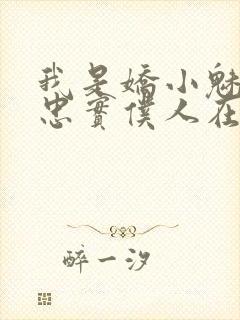 我是嬌小魅
忠實僕人在
醉一汐